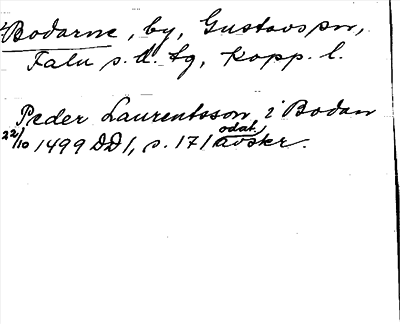 Bodarne, by, Gustavs sn,
Falu s.d. tg, Kopp. l.
Peder Laurentsson i Bodan
22/10 1499 DD 1, s. 171 odat. avskr.